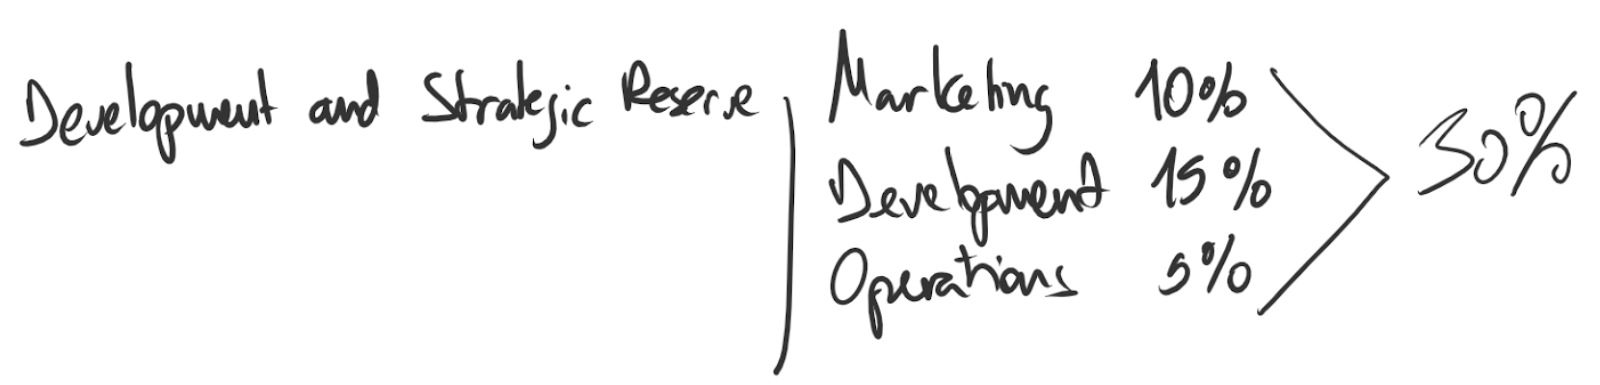 Development and Strategic Reserve
Marketing 10%
Development 15%
Operations 5%
30%